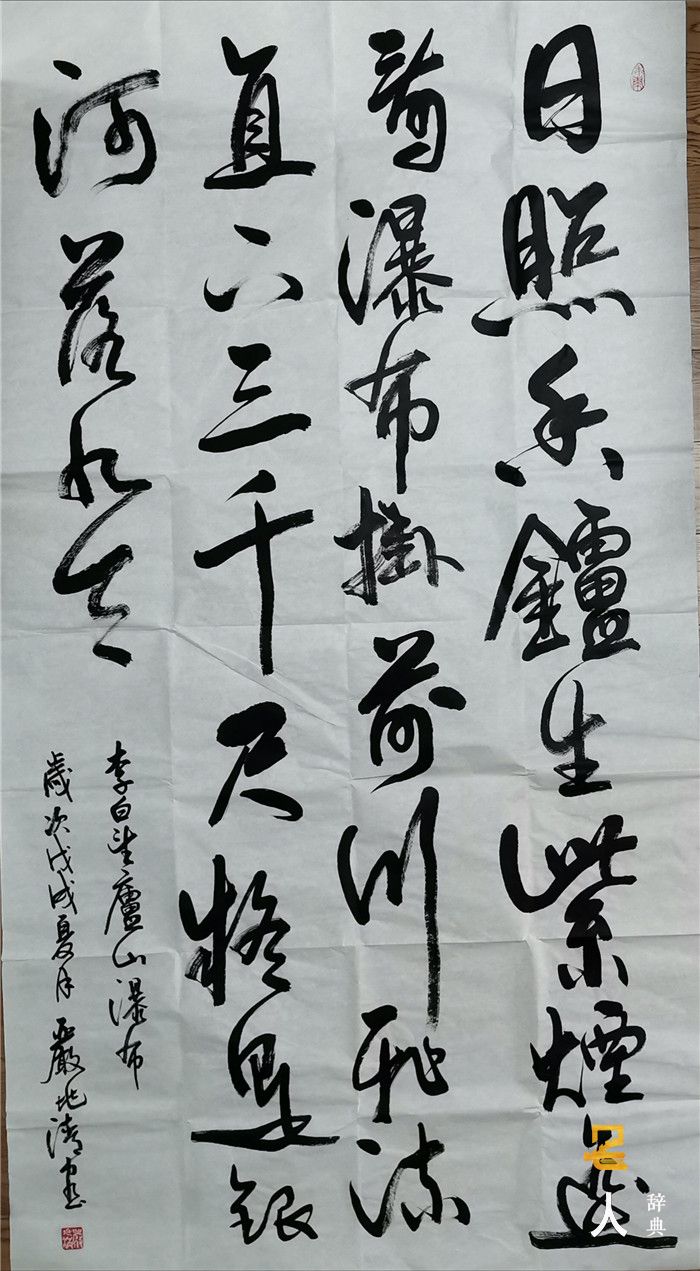 日照香鑪生紫煙遙
看瀑布掛前川飛流
直下三千尺疑是銀
河落九天
李白望廬山瀑布
歲次戊戌夏月嚴地清書
名人辞典